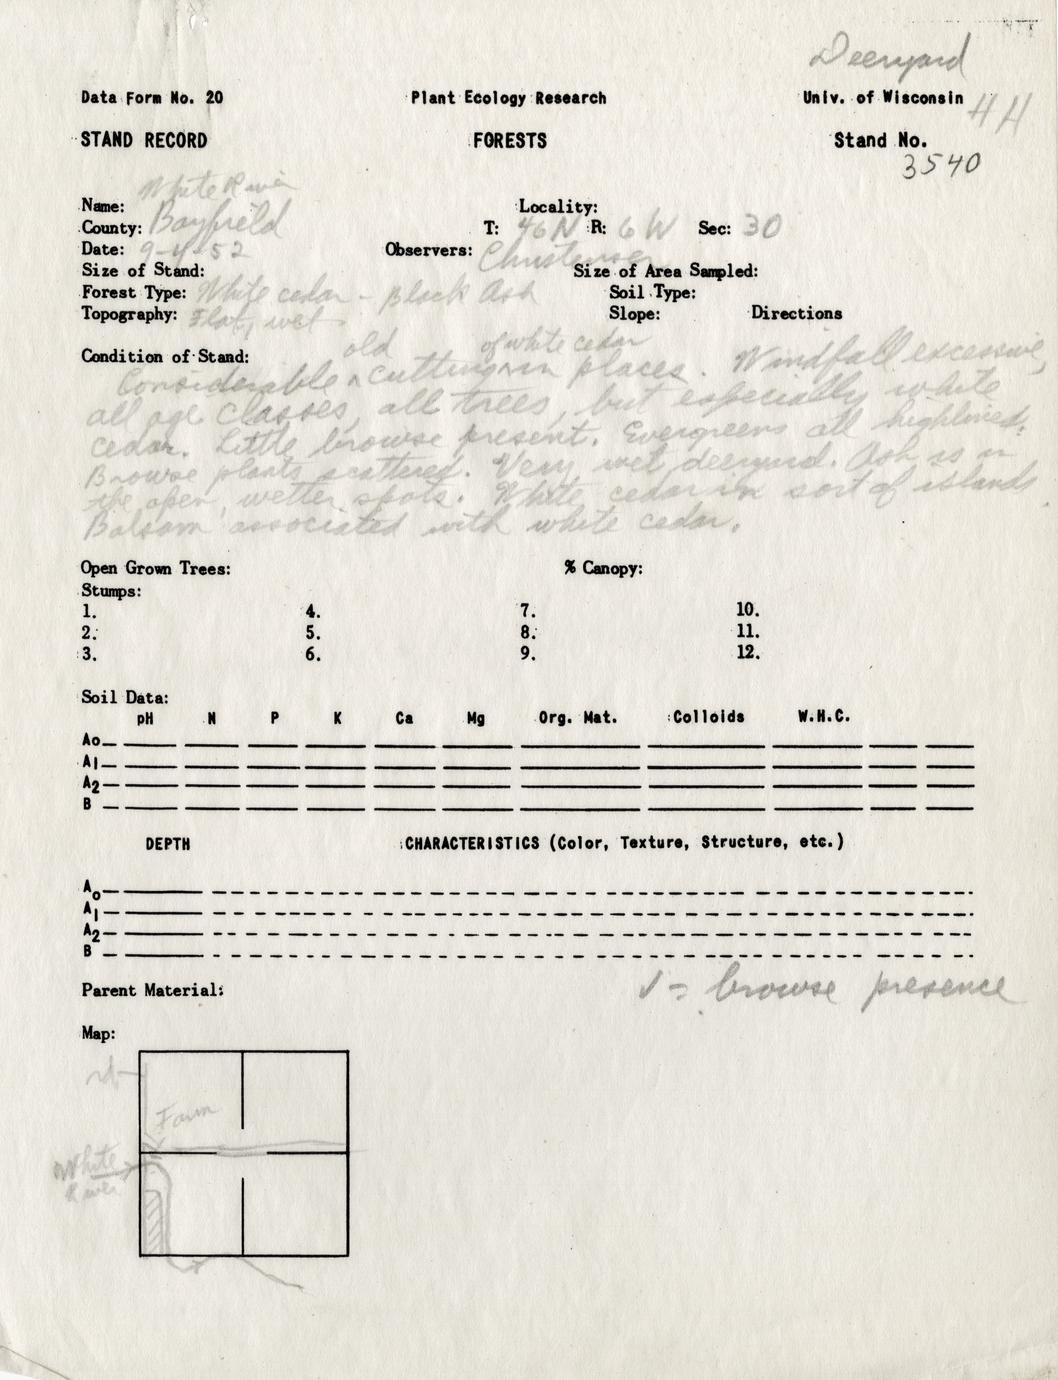 Deeryard
Data Form No. 20 Plant Ecology Research Univ. of Wisconsin
HH
STAND RECORD FORESTS Stand No.
3540
White River
Name: Locality:
County: Bayfield T: 46N R: 6W Sec: 30
Date: 9-4-52 Observers: Christensen
Size of Stand: Size of Area Sampled:
Forest Type: White cedar - Black Ash Soil Type:
Topography: Flat, wet Slope: Directions
Condition of Stand: old of white cedar
Considerable ^ cutting ^ in places. Windfall excessive,
all age classes, all trees, but especially white
cedar. Little browse present. Evergreens all highlined.
Browse plants scattered. Very wet deeryard. Ash is in
the open, wetter spots. White cedar in sort of islands
Balsam associated with white cedar.
Open Grown Trees: % Canopy:
Stumps:
1. 4. 7. 10.
2. 5. 8. 11.
3. 6. 9. 12.
Soil Data:
pH N P K Ca Mg Org. Mat. Colloids W.H.C.
Ao
A1
A2
B
DEPTH CHARACTERISTICS (Color, Texture, Structure, etc.)
Ao
A1
A2
B
Parent Material: √ = browse presence
Map:
rd
Farm
White
River